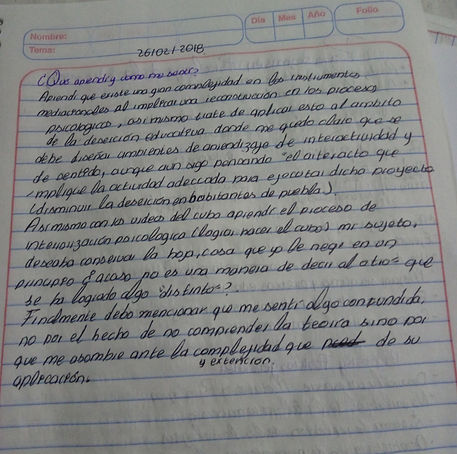 Nombre:
Tema:
Día
Mes
Año
Folio
26/02/2018
¿Que aprendi y como me senti?
Aprendi que existe una gran complejidad en los instrumentos
mediacionales al implicar una reconstrucción en los procesos
psicologicos, asi mismo trate de aplicar esto al ambito
de la deserción educativa donde me quedo claro que se
debe diseñar ambientes de aprendizaje de interactividad y
de sentido, aunque aun sigo pensando "el artefacto que
implique la actividad adecuada para ejecutar dicho proyecto
(disminuir la deserción en habitantes de puebla).
Asi mismo con los videos del cubo aprendi el proceso de
internalización psicologica (logica hacer el cubo) mi sujeto,
deseaba conservar la hoja, cosa que yo le nege en un
principio ¿acaso no es una manera de decir al otro que
se ha logrado algo "distinto"?
Finalmente debo mencionar que me senti algo confundida,
no por el hecho de no comprender la teoria sino por
que me asombre ante la complejidad que de su
y extención.
aplicación.